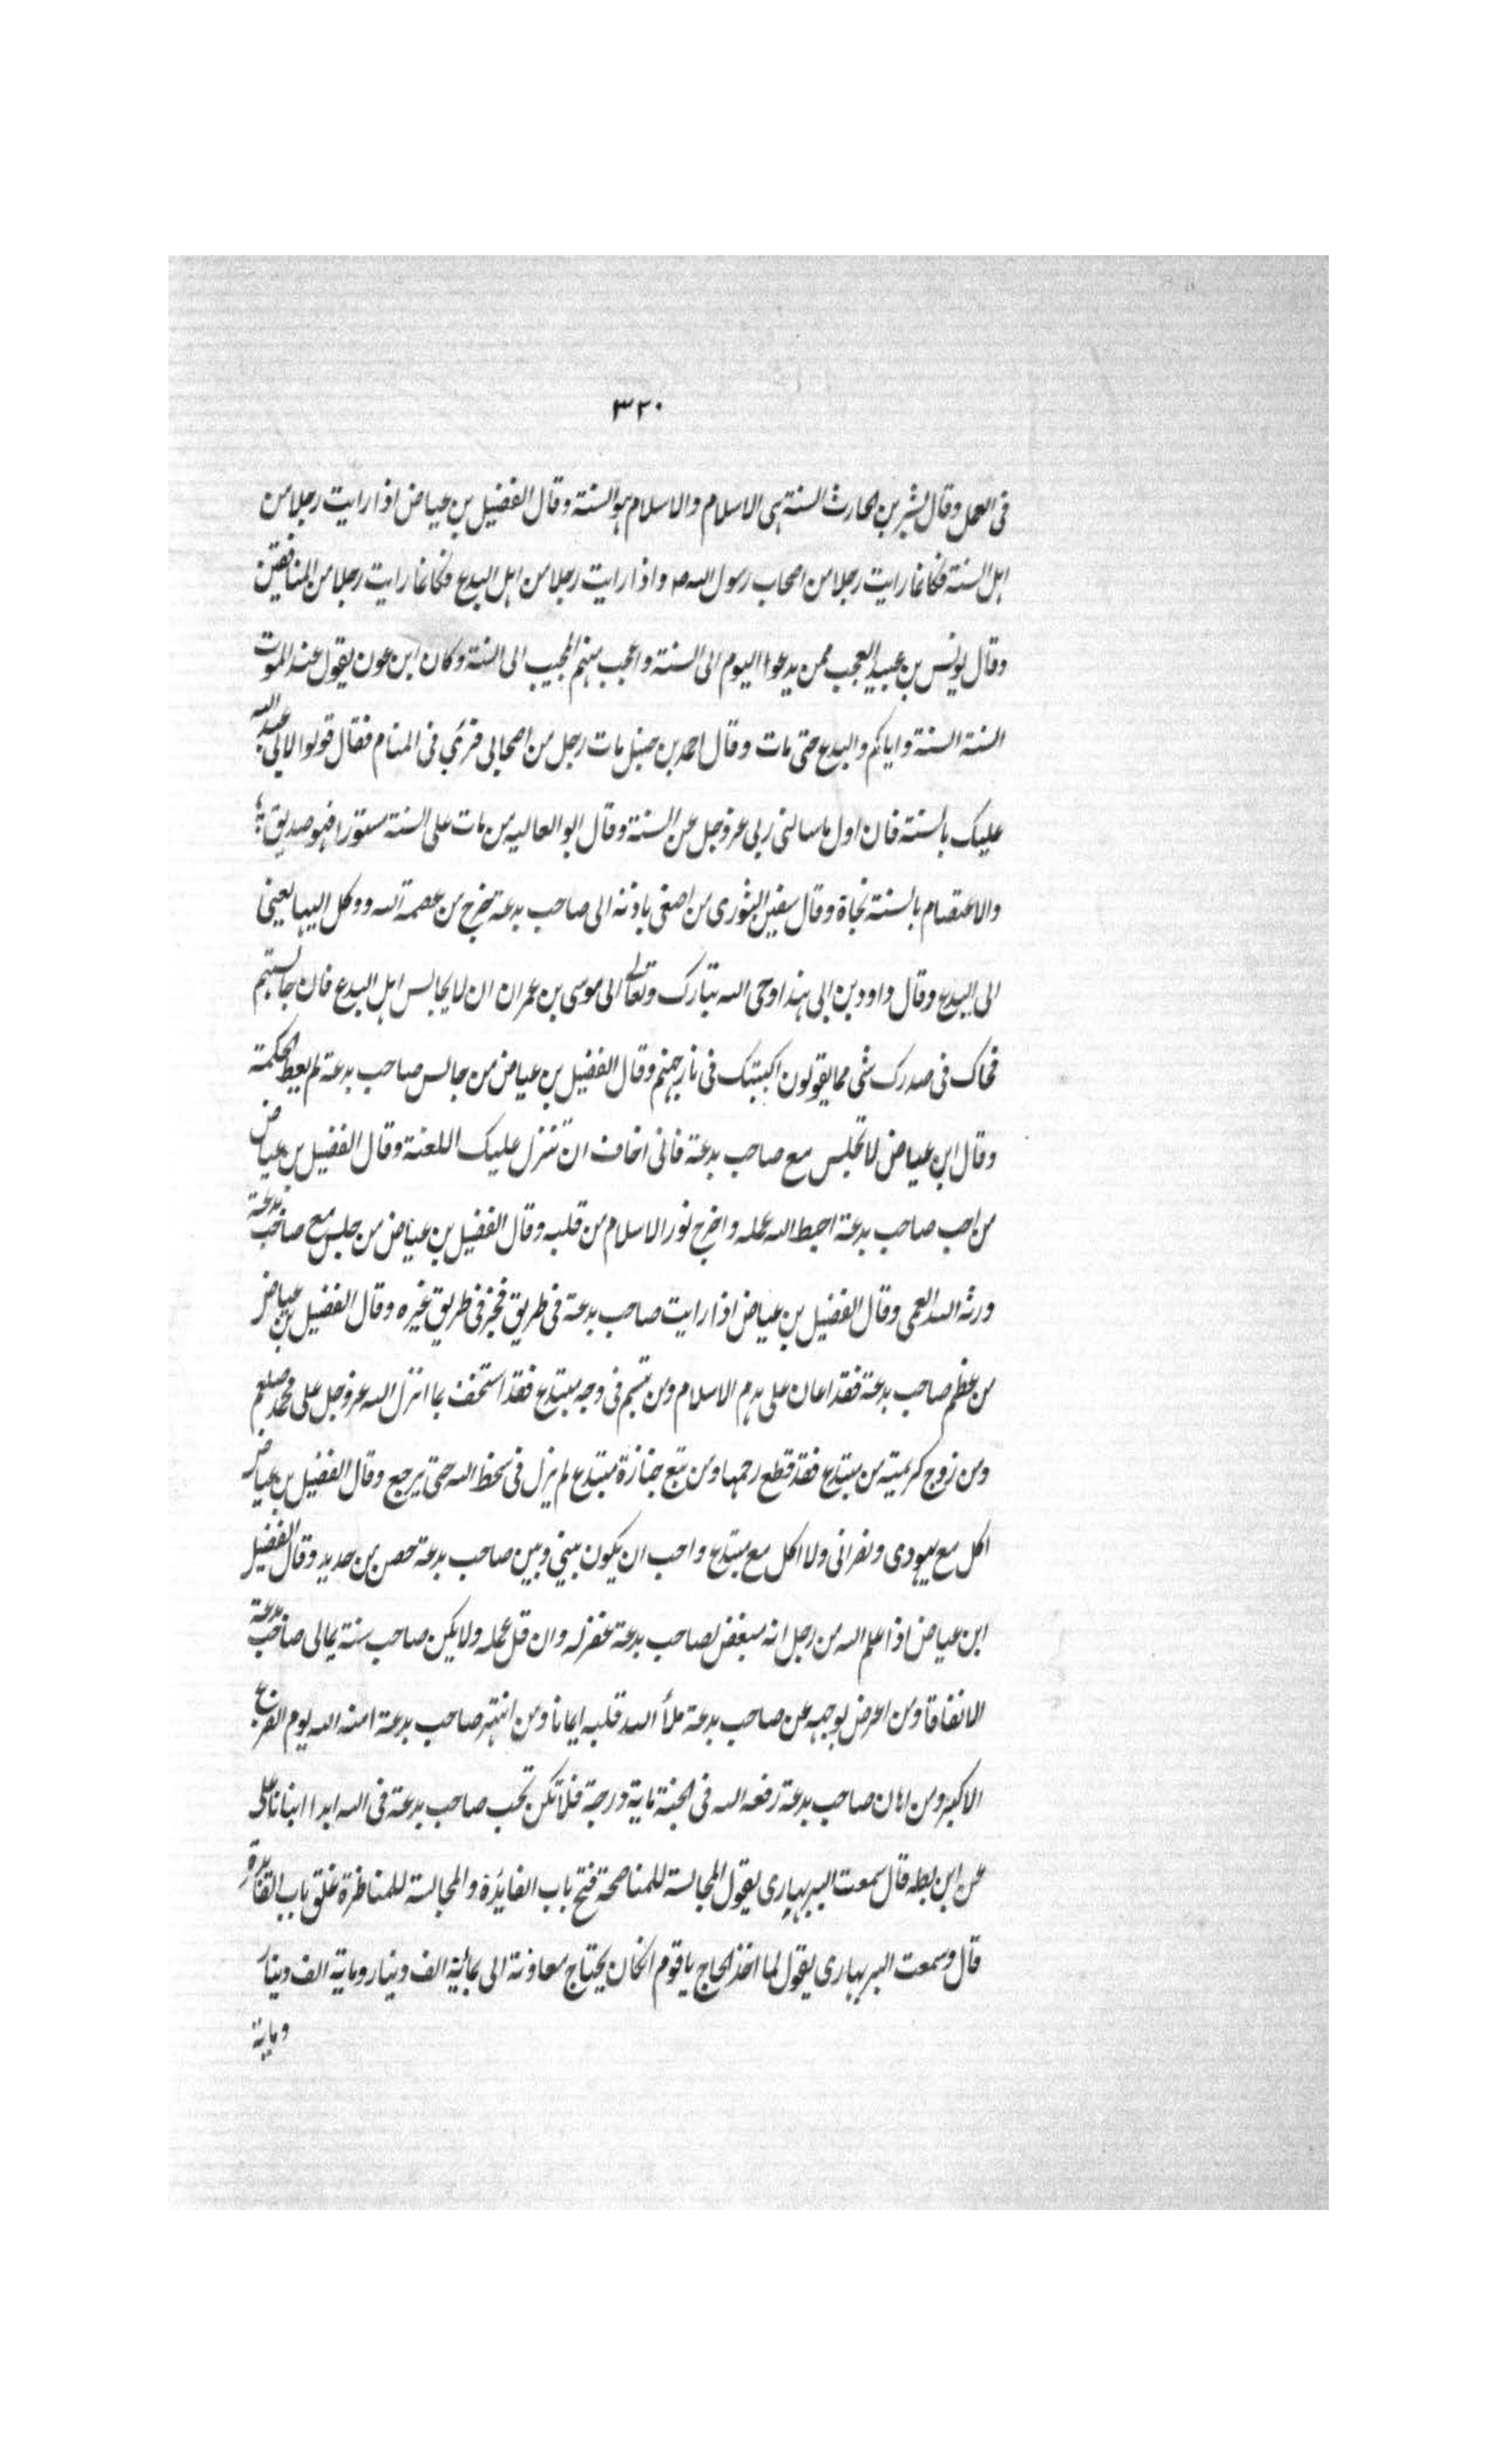 ٣٢٠
فى العمل وقال بشر بن الحارث السنة هى الاسلام والاسلام هو السنة وقال الفضيل بن عياض اذا رايت رجلا من
اهل السنة فكانما رايت رجلا من اصحاب رسول الله صـ واذا رايت رجلا من اهل البدع فكانما رايت رجلا من المنافقين
وقال يونس بن عبيد العجب ممن يدعوا اليوم الى السنة واعجب منهم المجيب الى السنة وكان ابن عون يقول عند الموت
السنة السنة واياكم والبدع حتى مات وقال احمد بن حنبل مات رجل من اصحابى فرئى فى المنام فقال قولوا لابى عبد الله
عليك بالسنة فان اول ما سالنى ربى عزوجل عن السنة وقال ابو العاليه من مات على السنة مستورا فهو صديق
والاعتصام بالسنة نجاة وقال سفين الثورى من اصغى باذنه الى صاحب بدعة خرج من عصمة الله ووكل اليها يعنى
الى البدع وقال داود بن ابى هند اوحى الله تبارك وتعالى الى موسى بن عمران ان لا يجالس اهل البدع فان جالستهم
فحاك فى صدرك شى مما يقولون اكببتك فى نار جهنم وقال الفضيل بن عياض من جالس صاحب بدعة لم يعط الحكمة
وقال ابن عياض لا تجلس مع صاحب بدعة فانى اخاف ان تنزل عليك اللعنة وقال الفضيل بن عياض
من احب صاحب بدعة احبط الله عمله واخرج نور الاسلام من قلبه وقال الفضيل بن عياض من جلس مع صاحب بدعة
ورثه الله العمى وقال الفضيل بن عياض اذا رايت صاحب بدعة فى طريق فجز فى طريق غيره وقال الفضيل بن عياض
من عظم صاحب بدعة فقد اعان على هدم الاسلام ومن تبسم فى وجه مبتدع فقد استخف بما انزل الله عزوجل على محمد صلعم
ومن زوج كريمته من مبتدع فقد قطع رحمها ومن تبع جنازة مبتدع لم يزل فى سخط الله حتى يرجع وقال الفضيل بن عياض
اكل مع يهودى ونصرانى ولا اكل مع مبتدع واحب ان يكون بينى وبين صاحب بدعة حصن من حديد وقال الفضيل
ابن عياض اذا علم الله من رجل انه مبغض لصاحب بدعة غفر له وان قل عمله ولا يكن صاحب سنة يمالى صاحب بدعة
الا نفاقا ومن اعرض بوجهه عن صاحب بدعة ملأ الله قلبه ايمانا ومن انتهر صاحب بدعة امنه الله يوم الفزع
الاكبر ومن اهان صاحب بدعة رفعه الله فى الجنة ماية درجة فلا تكن تحب صاحب بدعة فى الله ابدا انبانا على
عن ابن بطه قال سمعت البربهارى يقول المجالسة للمناصحة فتح باب الفايدة والمجالسة للمناظرة غلق باب الفايدة
قال وسمعت البربهارى يقول لما اخذ الحاج ياقوم ان كان يحتاج معاونة الى مائة الف دينار وماية الف دينار
وماية